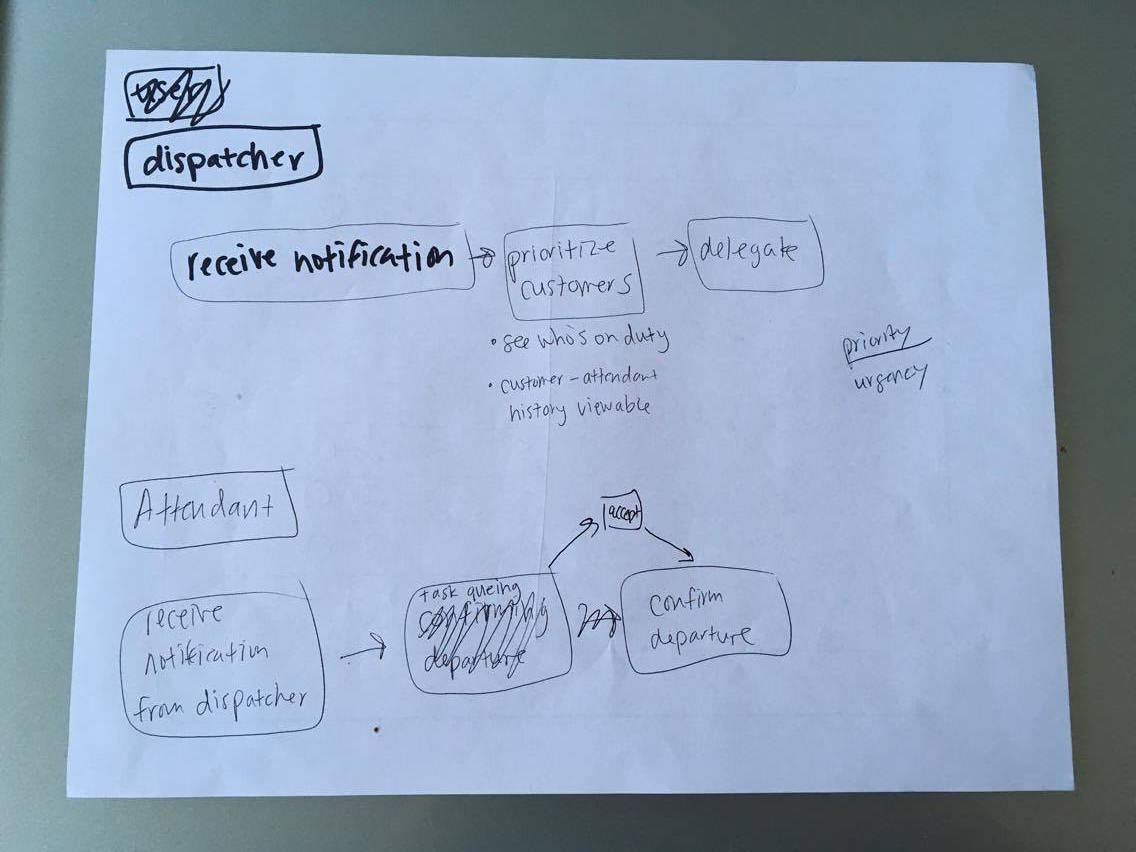 dispatcher
receive notification
prioritize
customers
delegate
• see who's on duty
• customer - attendant
history viewable
priority
urgency
Attendant
accept
receive
notification
from dispatcher
task queing
confirming
departure
confirm
departure